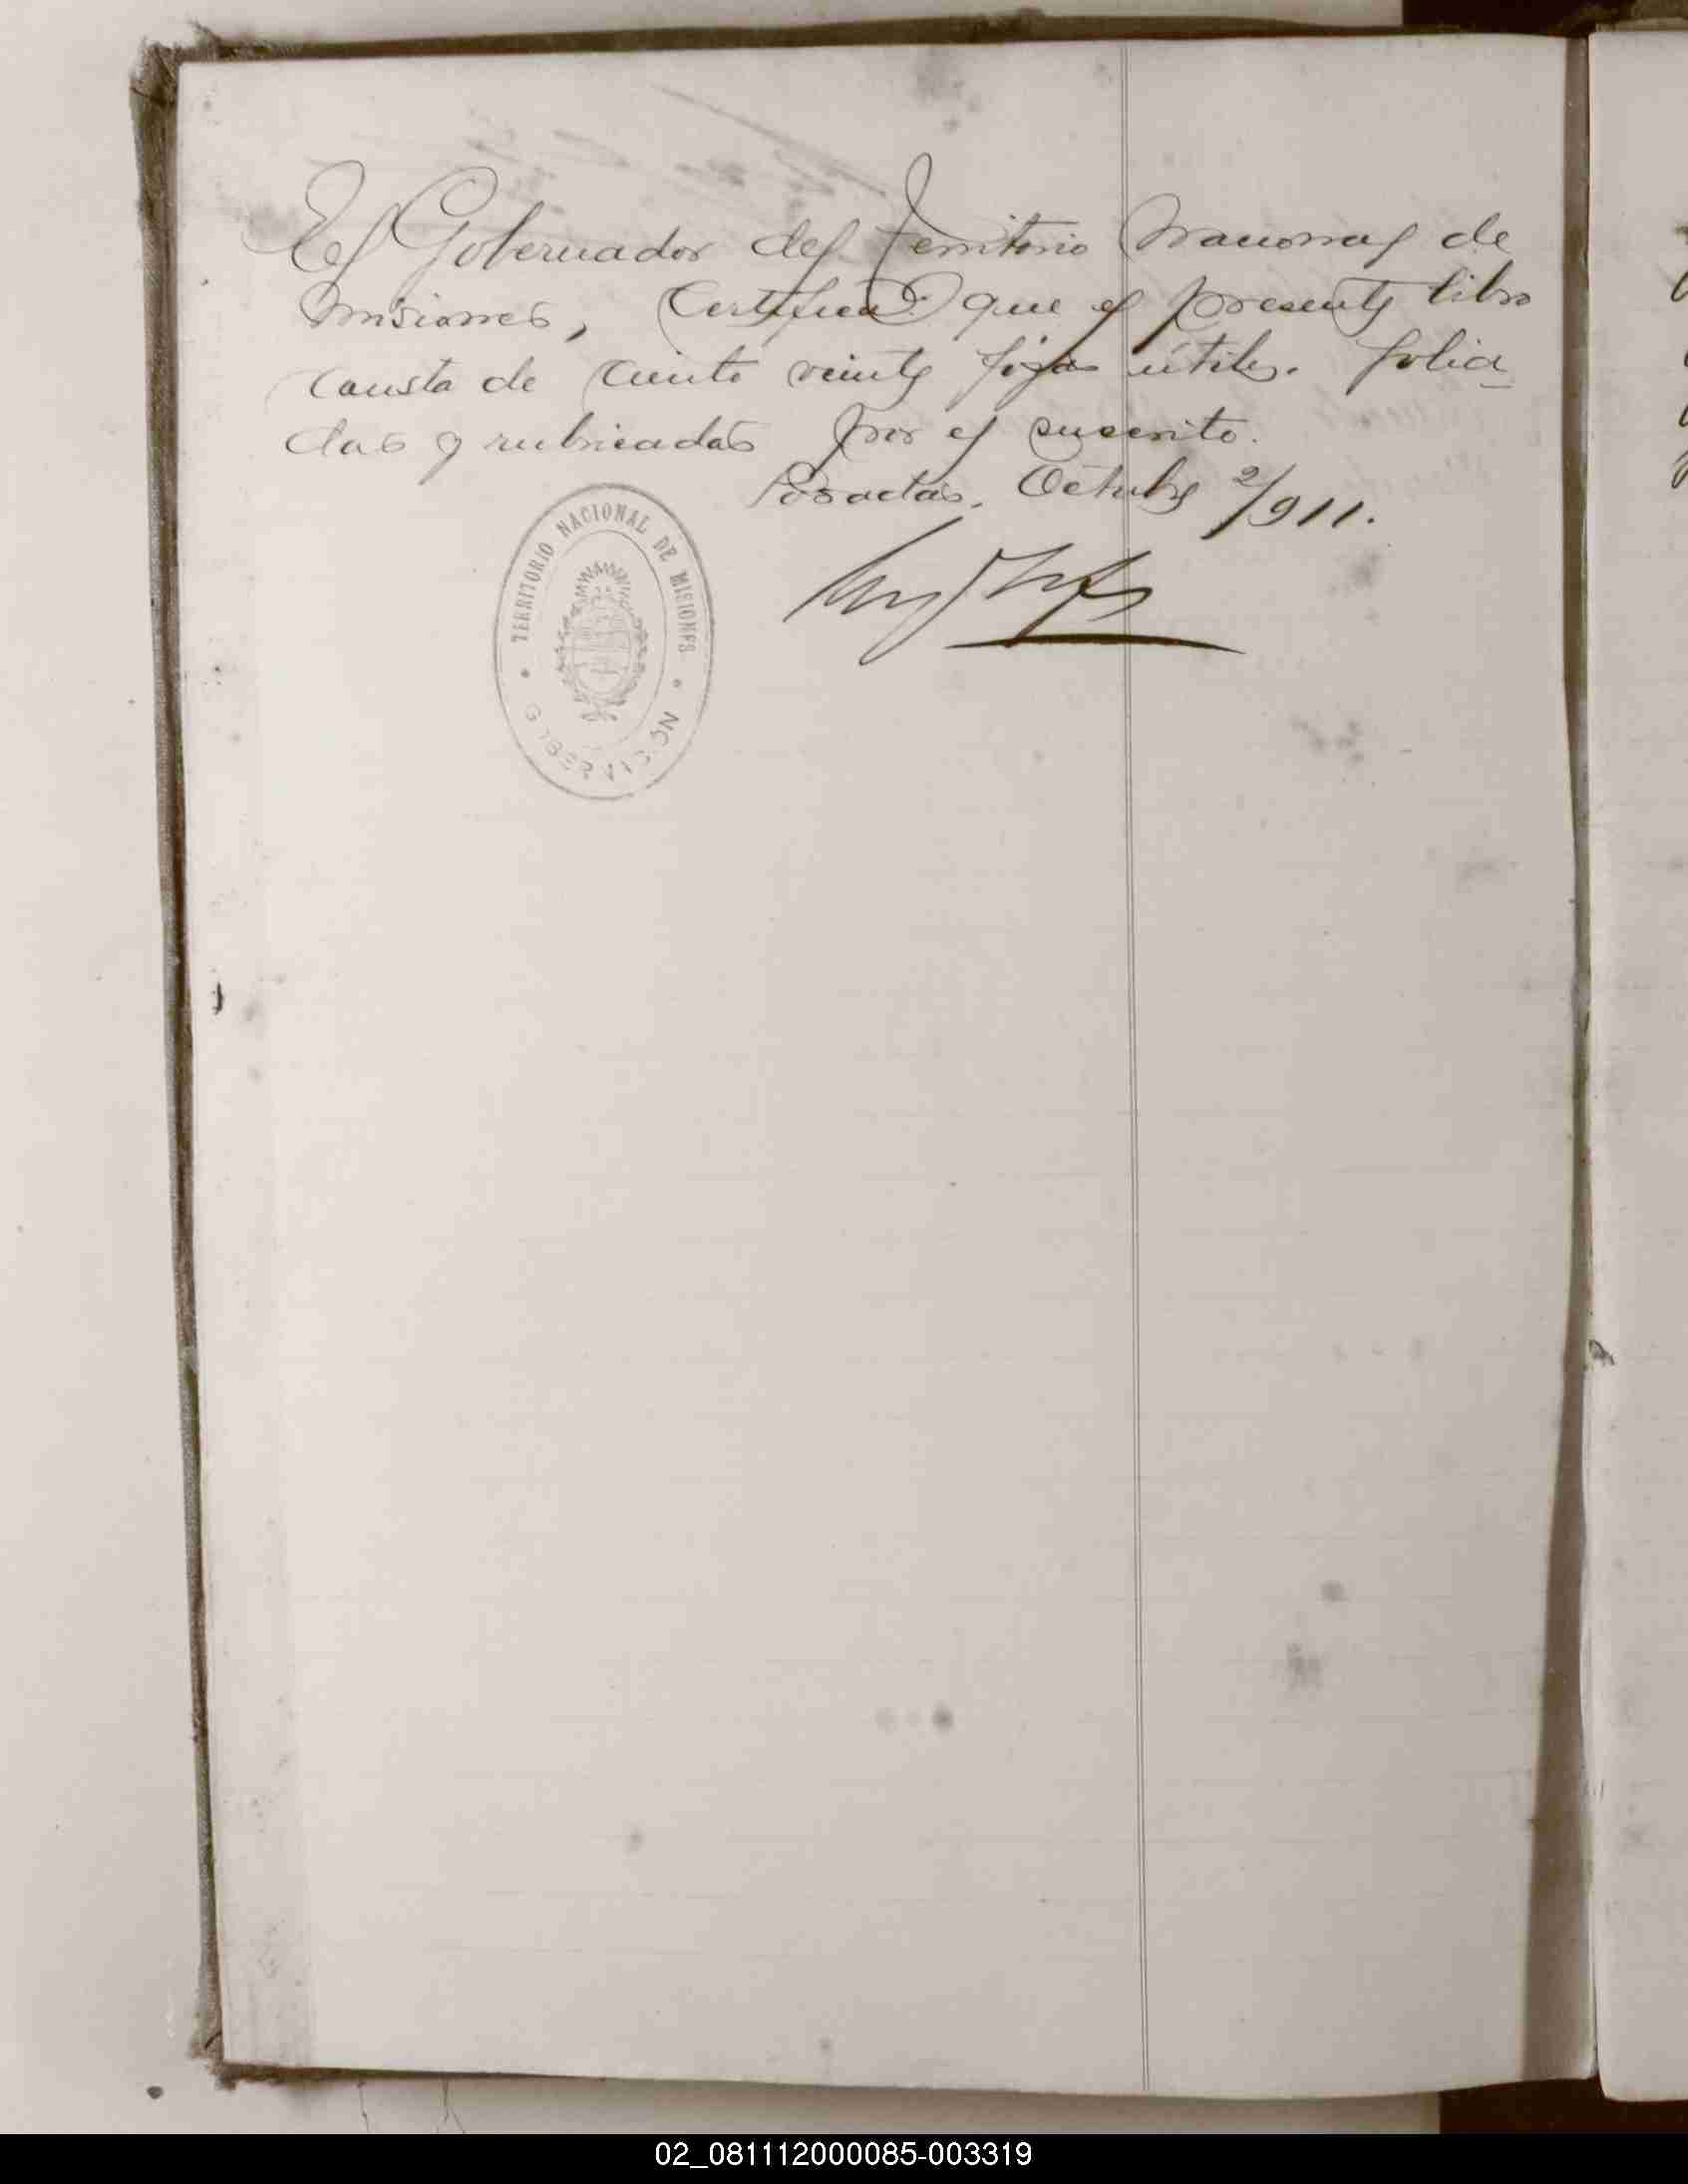 El Gobernador del Territorio Nacional de
Misiones, Certifica: que el presente libro
consta de ciento veinte fojas útiles. folia_
das y rubricadas por el suscrito.
Posadas, Octubre 2/911.
TERRITORIO NACIONAL DE MISIONES
02_081112000085-003319